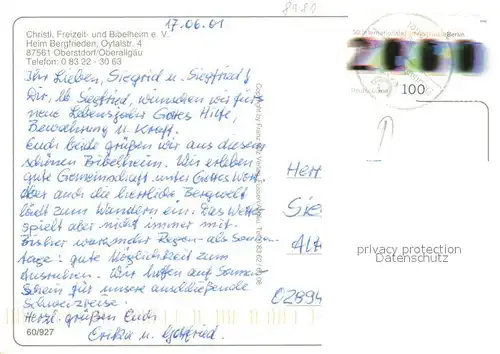 17.06.01
8981
Christl. Freizeit- und Bibelheim e. V.
Heim Bergfrieden, Oytalstr. 4
87561 Oberstdorf/Oberallgäu
Telefon: 0 83 22 - 30 63
Ihr Lieben, Siegrid u. Siegfried!
Dir, lb Siegfried, wünschen wir fürs
neue Lebensjahr Gottes Hilfe,
Bewahrung u. Kraft.
Euch beide grüßen wir aus diesem
schönen Bibelheim. Wir erleben
gute Gemeinschaft unter Gottes Wort
aber auch die herrliche Bergwelt
lädt zum Wandern ein. Das Wetter
spielt aber nicht immer mit.
Bisher waren mehr Regen- als Sonnen-
tage: gute Möglichkeit zum
Ausruhen. Wir hoffen auf Sonnen-
schein für unsere anschließende
Schweizreise.
Herzl. grüßen Euch
Erika u. Gottfried.
60/927
Copyright by Franz
Berlin
Deutschland
100
Herr
Sie
Alt
02894
privacy protection
Datenschutz